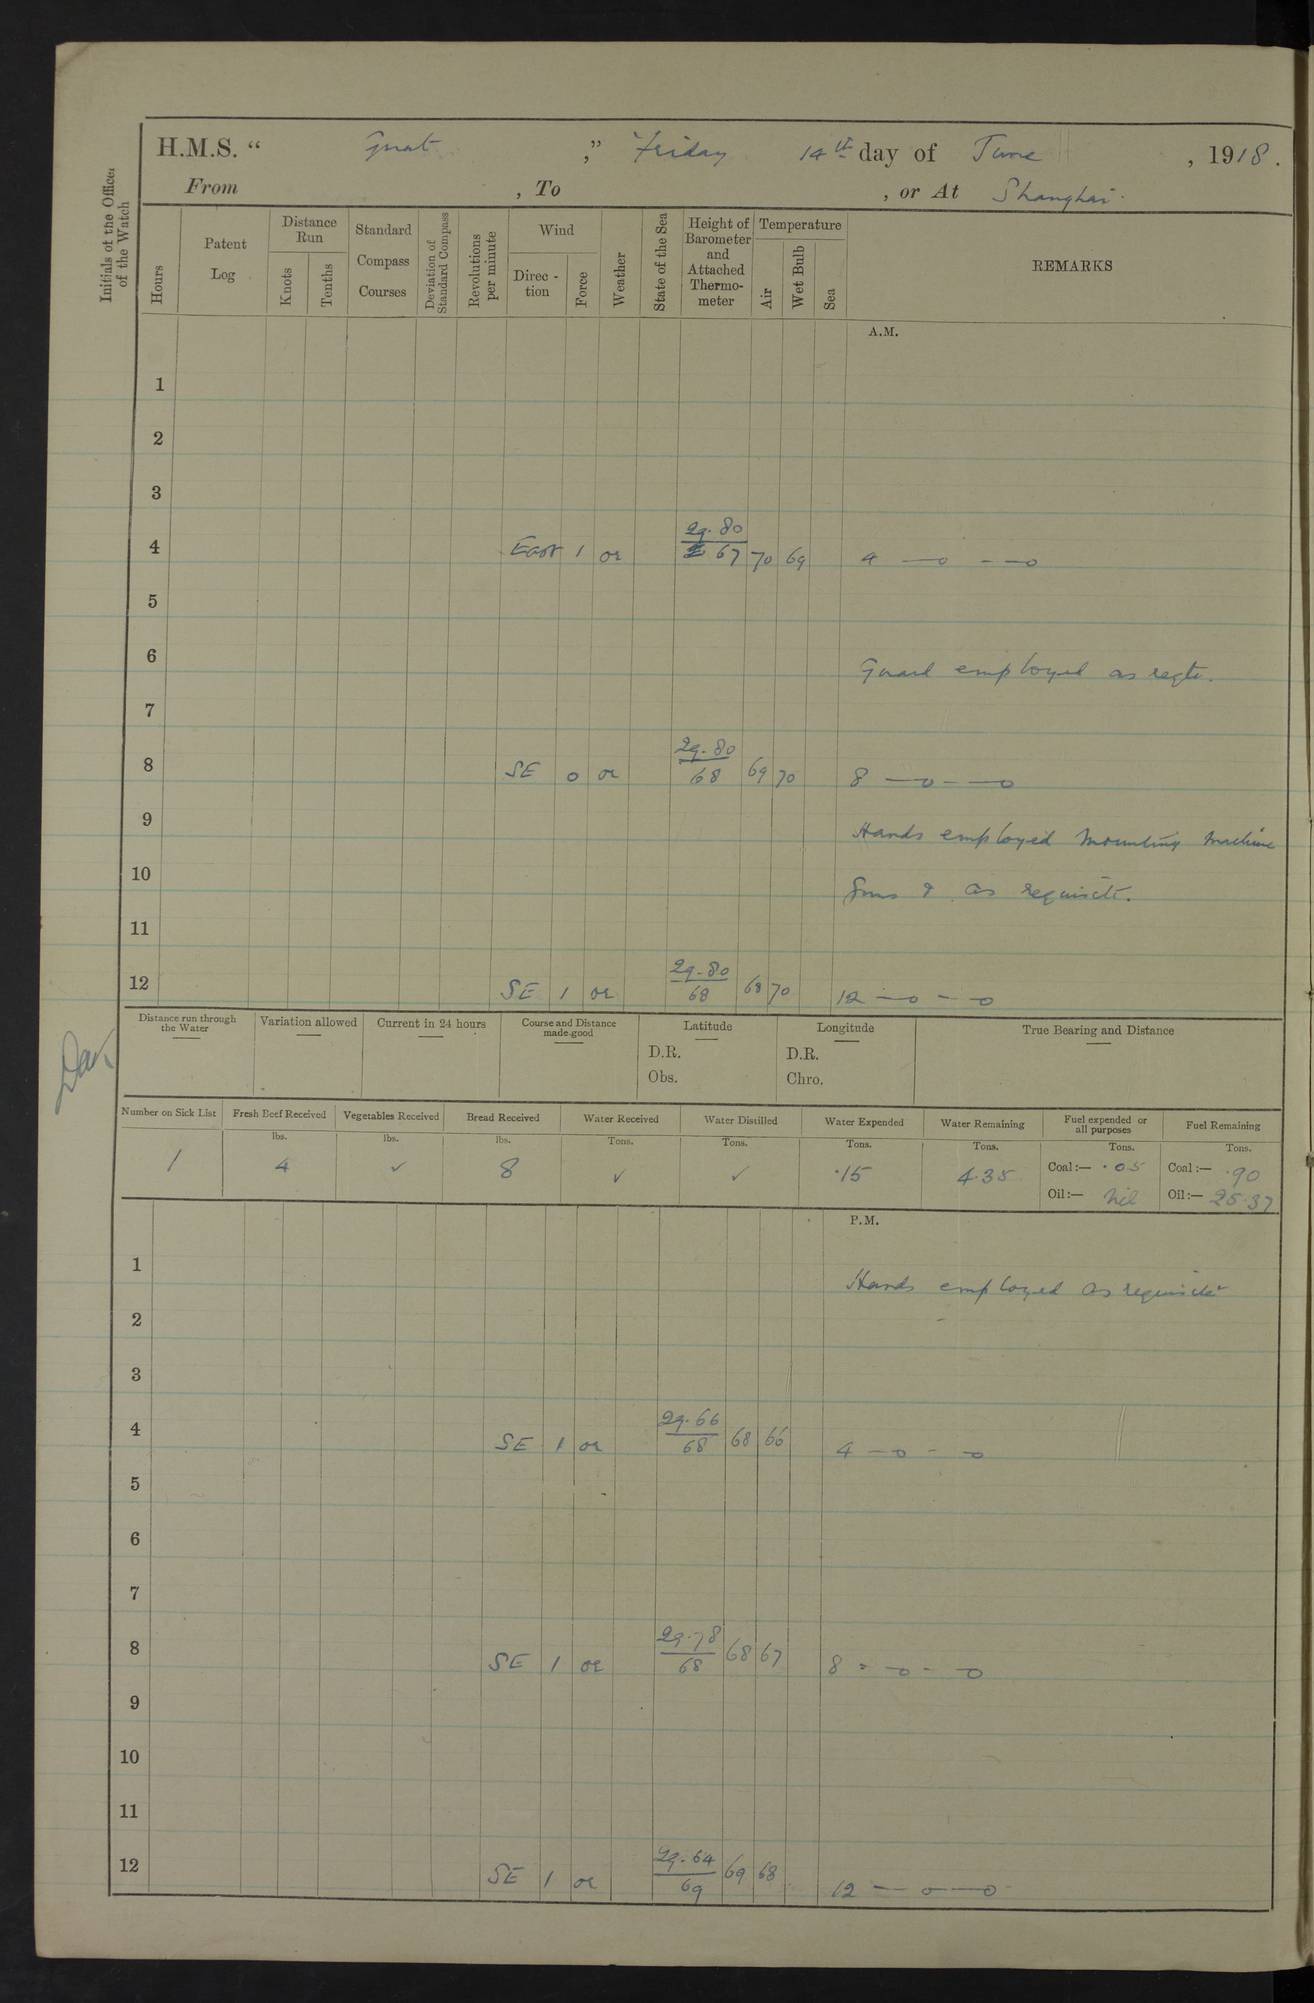 H.M.S. “ Gnat ,” Friday 14th day of June , 1918.
From , To , or At Shanghai.
Initials of the Officer of the Watch
Hours
Patent Log
Distance Run
Knots
Tenths
Standard Compass Courses
Deviation of Standard Compass
Revolutions per minute
Wind
Direc-tion
Force
Weather
State of the Sea
Height of Barometer and Attached Thermo-meter
Temperature
Air
Wet Bulb
Sea
REMARKS
A.M.
1
2
3
4 East 1 or 29.80 67 70 69 4 —o - —o
5
6 Guard employed as reqte.
7
8 SE 0 or 29.80 68 69 70 8 —o - —o
9 Hands employed mounting machine
10 Guns & as requisite.
11
12 SE 1 or 29.80 68 68 70 12 —o - o
Distance run through the Water
Variation allowed
Current in 24 hours
Course and Distance made good
Latitude
D.R.
Obs.
Longitude
D.R.
Chro.
True Bearing and Distance
Number on Sick List
1
Fresh Beef Received
lbs.
4
Vegetables Received
lbs.
✓
Bread Received
lbs.
8
Water Received
Tons.
✓
Water Distilled
Tons.
✓
Water Expended
Tons.
.15
Water Remaining
Tons.
4.35
Fuel expended or all purposes
Tons.
Coal:— .05
Oil:— Nil
Fuel Remaining
Tons.
Coal:— .90
Oil:— 25.37
P.M.
1 Hands employed as requisite
2
3
4 SE 1 or 29.66 68 68 66 4 —o - o
5
6
7
8 SE 1 or 29.78 68 68 67 8 - o - o
9
10
11
12 SE 1 or 29.64 69 69 68 12 — o —o